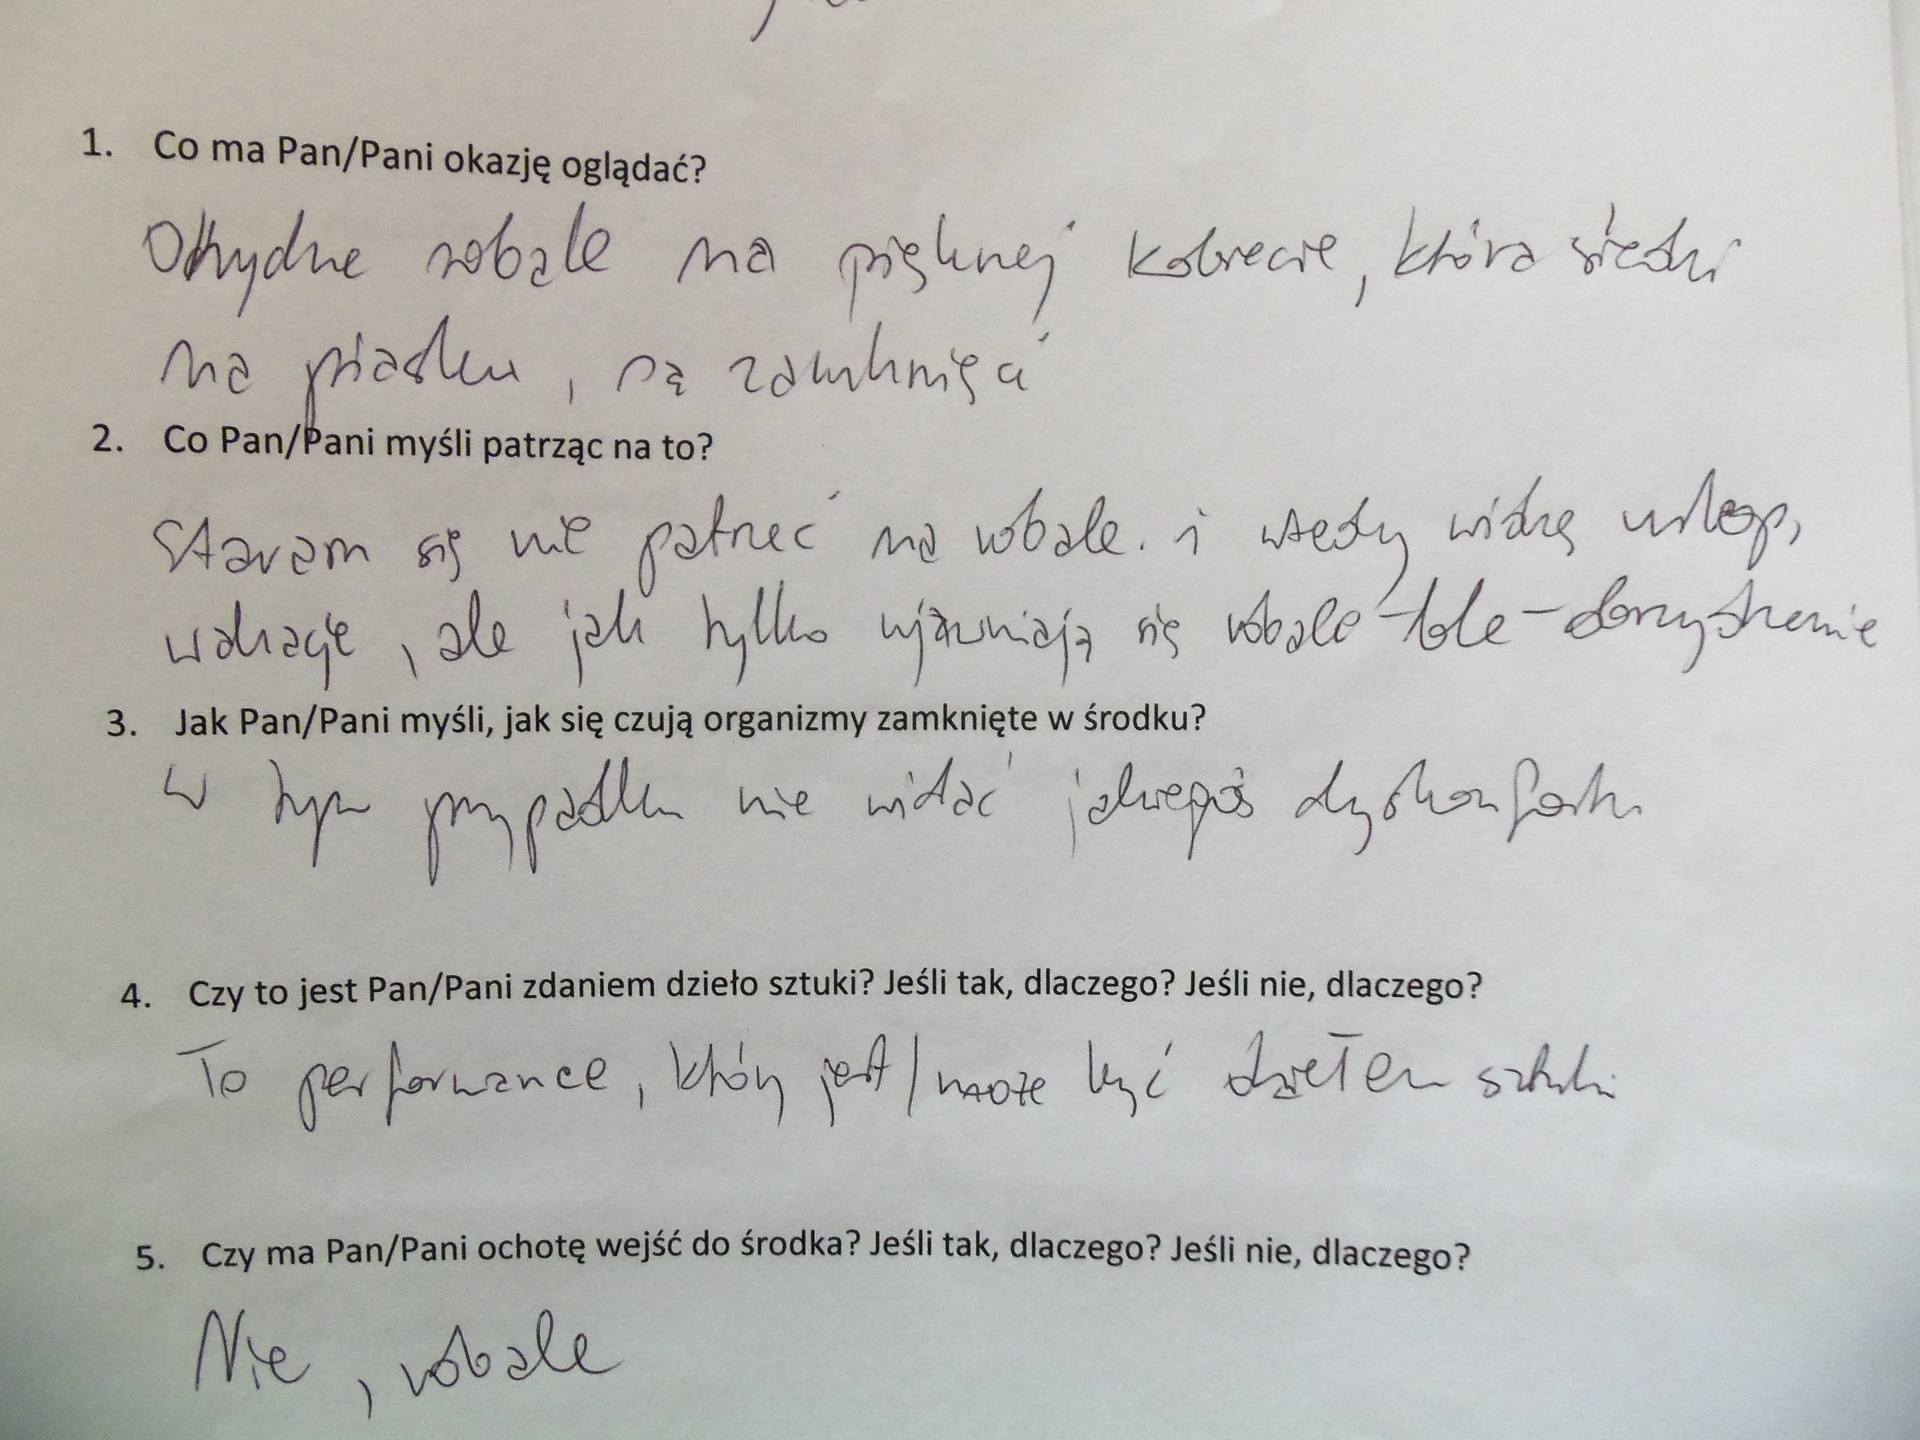 1. Co ma Pan/Pani okazję oglądać?
Ohydne robale na pięknej kobiecie, która siedzi
na piasku, są zamknięci
2. Co Pan/Pani myśli patrząc na to?
Staram się nie patrzeć na robale. i wtedy widzę urlop,
wakacje, ale jak tylko ujawniają się robale
3. Jak Pan/Pani myśli, jak się czują organizmy zamknięte w środku?
W tym przypadku nie widać jakiegoś dyskomfortu
4. Czy to jest Pan/Pani zdaniem dzieło sztuki? Jeśli tak, dlaczego? Jeśli nie, dlaczego?
To performance, który jest/może być dziełem sztuki
5. Czy ma Pan/Pani ochotę wejść do środka? Jeśli tak, dlaczego? Jeśli nie, dlaczego?
Nie, robale